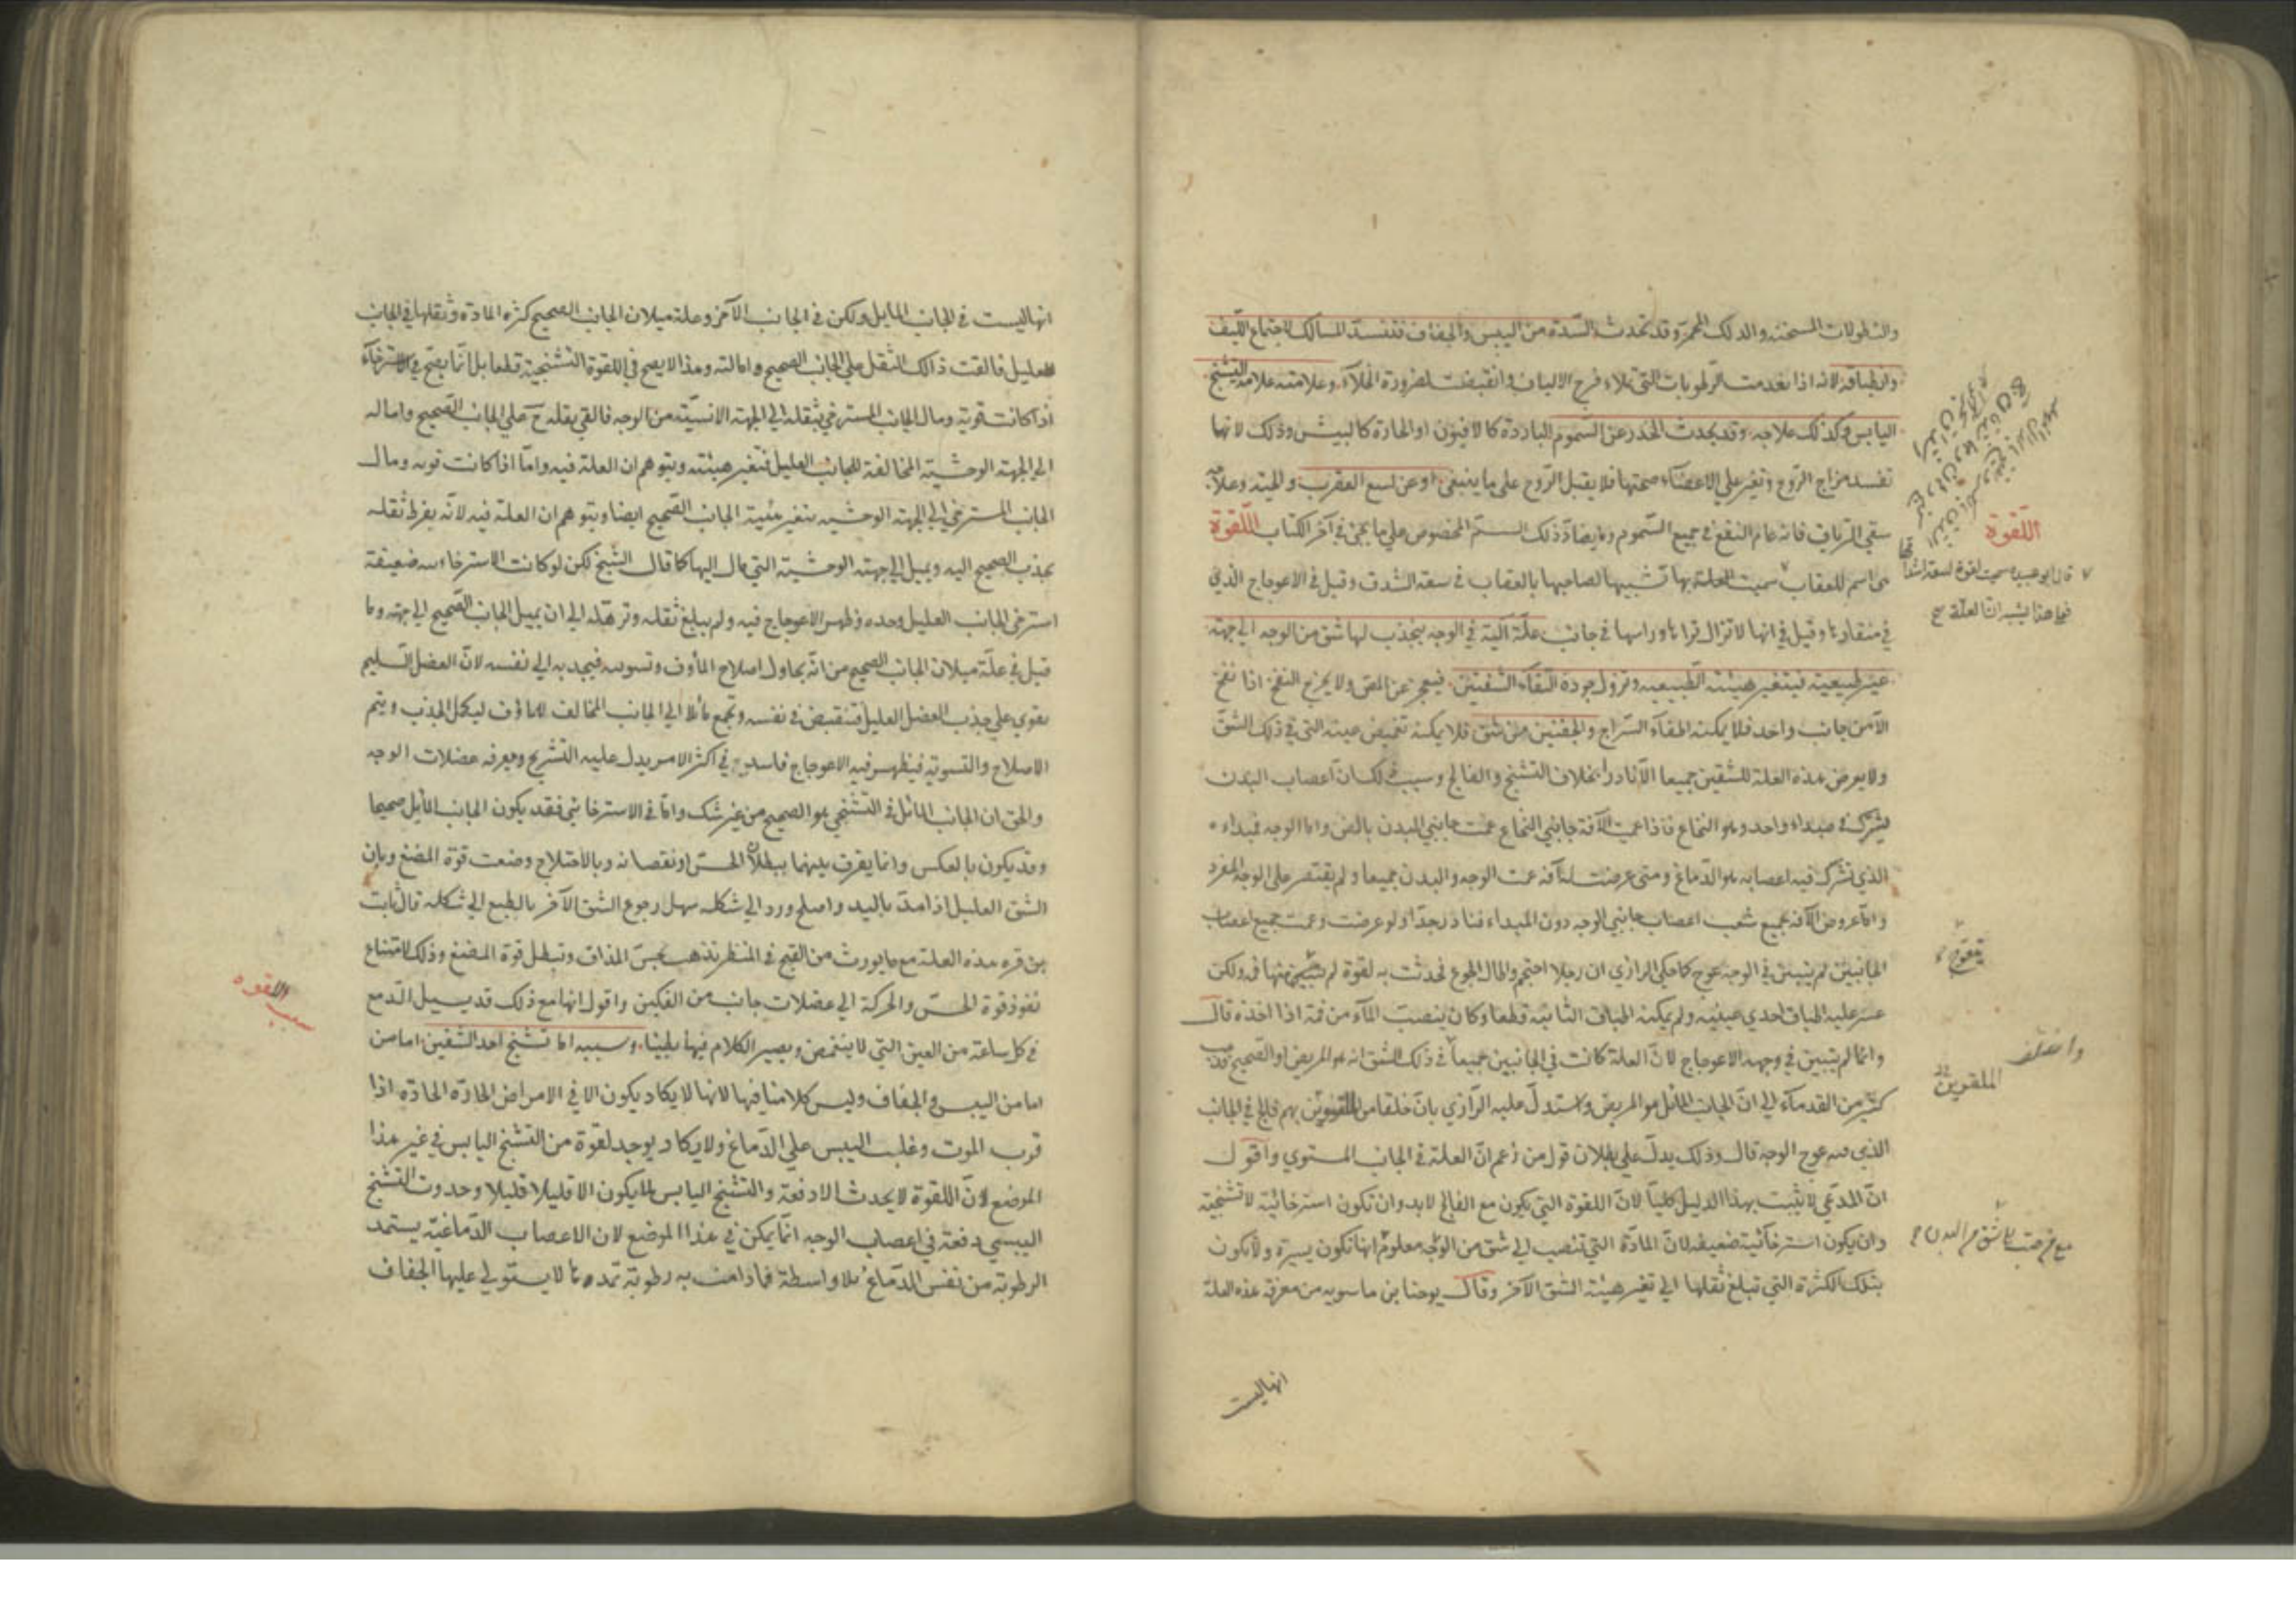 والنطولات المسخنه والدلك المحمر وقد تحدث السدة من اليبس والجفاف فتفسد المسالك لاجتماع الليف
وانطباقه لانه اذا بعدمت الرطوبات التي تملاء فرج الالياف وانقبضت لضرورة الخلآء وعلامته علامة التشنج
اليابس وكذلك علاجه وقد يحدث الخدر عن السموم الباردة كالافيون او الحارة كالبيش وذلك لانها
تفسد مزاج الروح وتغير على الاعضآء صحتها فلا يقبل الروح على ما ينبغي او عن لسع العقرب والحية وعلاجه
سقي الترياق فانه عام النفع في جميع السموم وما يضاد ذلك السم المخصوص على ما يجئ في آخر الكتاب اللقوة
هى اسم للعقاب سميت العلة بها تشبيها لصاحبها بالعقاب في سعة الشدق وقيل في الاعوجاج الذي
في منقارها وقيل في انها لا تزال تراها وراسها في جانب علة آلية في الوجه ينجذب لها شق من الوجه الى جهة
غير طبيعية فيتغير هيئته الطبيعيه وتزول جودة التقآء الشفتين فيعجز عن المص ولا يخرج النفخ اذا نفخ
الا من جانب واحد فلا يمكنه اطفآء السراج والجفنين من شق فلا يمكنه تغميض عينه التي في ذلك الشق
ولا يعرض هذه العلة للشقين جميعا الا نادرا بخلاف التشنج والفالج وسبب ذلك ان اعصاب البدن
يشترك في مبداء واحد وهو النخاع فاذا عمت الآفة جانبي النخاع عمت جانبي البدن بالض واما الوجه فمبداءه
الذي تشترك فيه اعصابه هو الدماغ ومتى عرضت له آفة عمت الوجه والبدن جميعا ولم يقتصر على الوجه المفرد
واما عروض الآفة لجميع شعب اعصاب جانبي الوجه دون المبداء فنادر جدا ولو عرضت وعمت جميع اعصاب
الجانبين لم يتبين في الوجه عوج كما حكى الرازي ان رجلا احتجم واطال الجوع فحدثت به لقوة لم يتبين منها ولكن
عسر عليه اطباق احدي عينيه ولم يمكنه اطباق الثانية قطعا وكان ينصب المآء من فمه اذا اخذه قال
وانما لم يتبين في وجهه الاعوجاج لان العلة كانت في الجانبين جميعا في ذلك الشق انه هو المريض او الصحيح فذهب
كثير من القدمآء الى ان الجانب المائل هو المريض واستدل عليه الرازي بان خلقا من الملقوين بهم فالج في الجانب
الذي فيه عوج الوجه قال وذلك يدل على بطلان قول من زعم ان العلة في الجانب المستوي واقول
ان المدعي لا يثبت بهذا الدليل كليا لان اللقوة التي يكون مع الفالج لابد وان تكون استرخائية لا تشنجية
وان يكون استرخآئية ضعيفه لان المادة التي تنصب الى شق من الوجه معلوم انها تكون يسيرة ولا يكون
بتلك الكثرة التي تبلغ ثقلها الى تغير هيئة الشق الآخر وقال يوحنا بن ماسويه من معرفة هذه العلة
انها ليست
اللقوة
قال ابو عبيد سميت لقوة لسعة اشداقها
فعلى هذا يشبه ان العلة
تعوج
واختلف
الملقوين
انها ليست في الجانب المايل ولكن في الجانب الآخر وعلة ميلان الجانب الصحيح كثرة المادة وثقلها في الجانب
العليل فالقت ذالك الثقل على الجانب الصحيح وامالته وهذا لا يصح في اللقوة التشنجية قطعا بل انما يصح في الاسترخآء
اذا كانت قوية ومال الجانب المسترخي بثقله الى الجهة الانسية من الوجه فالقي بقله ح على الجانب الصحيح واماله
الى الجهة الوحشية المخالفة للجانب العليل فتغير هيئته ويتوهم ان العلة فيه واما اذا كانت قوية ومال
الجانب المسترخي الى الجهة الوحشيه يتغير هيئة الجانب الصحيح ايضا ويتوهم ان العلة فيه لانه بفرط ثقله
يجذب الصحيح اليه ويميل الى جهة الوحشية التي مال اليها كما قال الشيخ لكن لو كانت الاسترخاءيه ضعيفة
استرخى الجانب العليل وحده وظهر الاعوجاج فيه ولم يبلغ ثقله وترهله الى ان يميل الجانب الصحيح الى جهته وما
قيل في علة ميلان الجانب الصحيح من انه يحاول اصلاح المأوف وتسويه فيجذبه الى نفسه لان العضل السليم
يقوي على جذب العضل العليل فتنقبض في نفسه وتجمع مائلا الى الجانب المخالف للمأوف ليكمل الجذب ويتم
الاصلاح والتسوية فيظهر فيه الاعوجاج فاسد في اكثر الامر يدل عليه التشريح ومعرفة عضلات الوجه
والحق ان الجانب المائل في التشنجي هو الصحيح من غير شك واما في الاسترخائي فقد يكون الجانب المايل صحيحا
وقد يكون بالعكس وانما يفرق بينهما ببطلان الحس او نقصانه وبالاختلاج وضعف قوة المضغ وبان
الشق العليل اذا مد باليد واصلح ورد الى شكله سهل رجوع الشق الآخر بالطبع الى شكله قال ثابت
بن قره هذه العلة مع ما يورث من القبح في المنظر تذهب بحس المذاق وتبطل قوة المضغ وذلك لامتناع
نفوذ قوة الحس والحركة الى عضلات جانب من الفكين واقول انها مع ذلك قد يسيل الدمع
في كل ساعة من العين التي لا ينغمض ويصير الكلام فيها بطيئا وسببه اما تشنج احد الشقين اما من
اما من اليبس والجفاف وليس كلامنا فيها لانها لا يكاد يكون الا في الامراض الحادة الحادة اذا
قرب الموت وغلب اليبس على الدماغ ولا يكاد يوجد لقوة من التشنج اليابس في غير هذا
الموضع لان اللقوة لا يحدث الا دفعة والتشنج اليابس لا يكون الا قليلا قليلا وحدوث التشنج
اليبسي دفعة في اعصاب الوجه انما يمكن في هذا الموضع لان الاعصاب الدماغية يستمد
الرطوبة من نفس الدماغ بلا واسطة فما دامت به رطوبة تمدها لا يستولي عليها الجفاف
سبب اللقوه